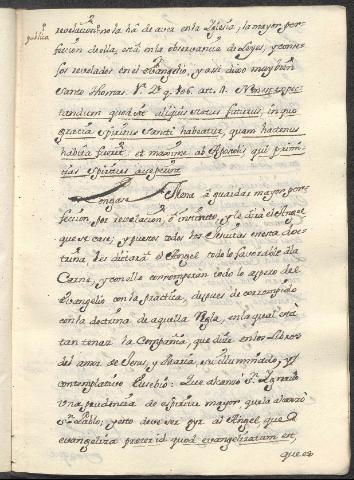 publica
revelacion no la há de aver en la Iglesia; la mayor per-
feccion de ella, está en la observancia de Leyes, y conse-
jos revelados en el evangelio, y assi dixo muy bien
Santo Thomas 1ª. 2ª. q. 106. art. 4. Non est expec-
tandum quod sit aliquis status futurus, in quo
gracia Spiritus Sancti habeatur, quam hactenus
habita fuerit et maxime ab Apostolis, qui primi-
tias espiritus acceperunt
Pongase Mona á guardar mayor per-
feccion por revelacion, ó instinto, y le dirá el Angel
que se case; y puestos todos los Jesuitas en esta doc-
trina les dictará el Angel todo lo favorable á la
Carne, y con ella corromperán todo lo aspero del
Evangelio con la practica, despues de corrompido
con la doctrina de aquella Regla, en la qual está
tan tenaz la Compañia, que dice en los Libros
del amor de Jesus, y Maria, su illuminado, y
contemplativo Eusebio: Que alcanzó Sn. Ignacio
una prudencia de espiritu mayor que la alcanzó
Sn. Pablo; y esto deve ser por el Angel, que
evangeliza preter id quod evangelizatum est,
que es